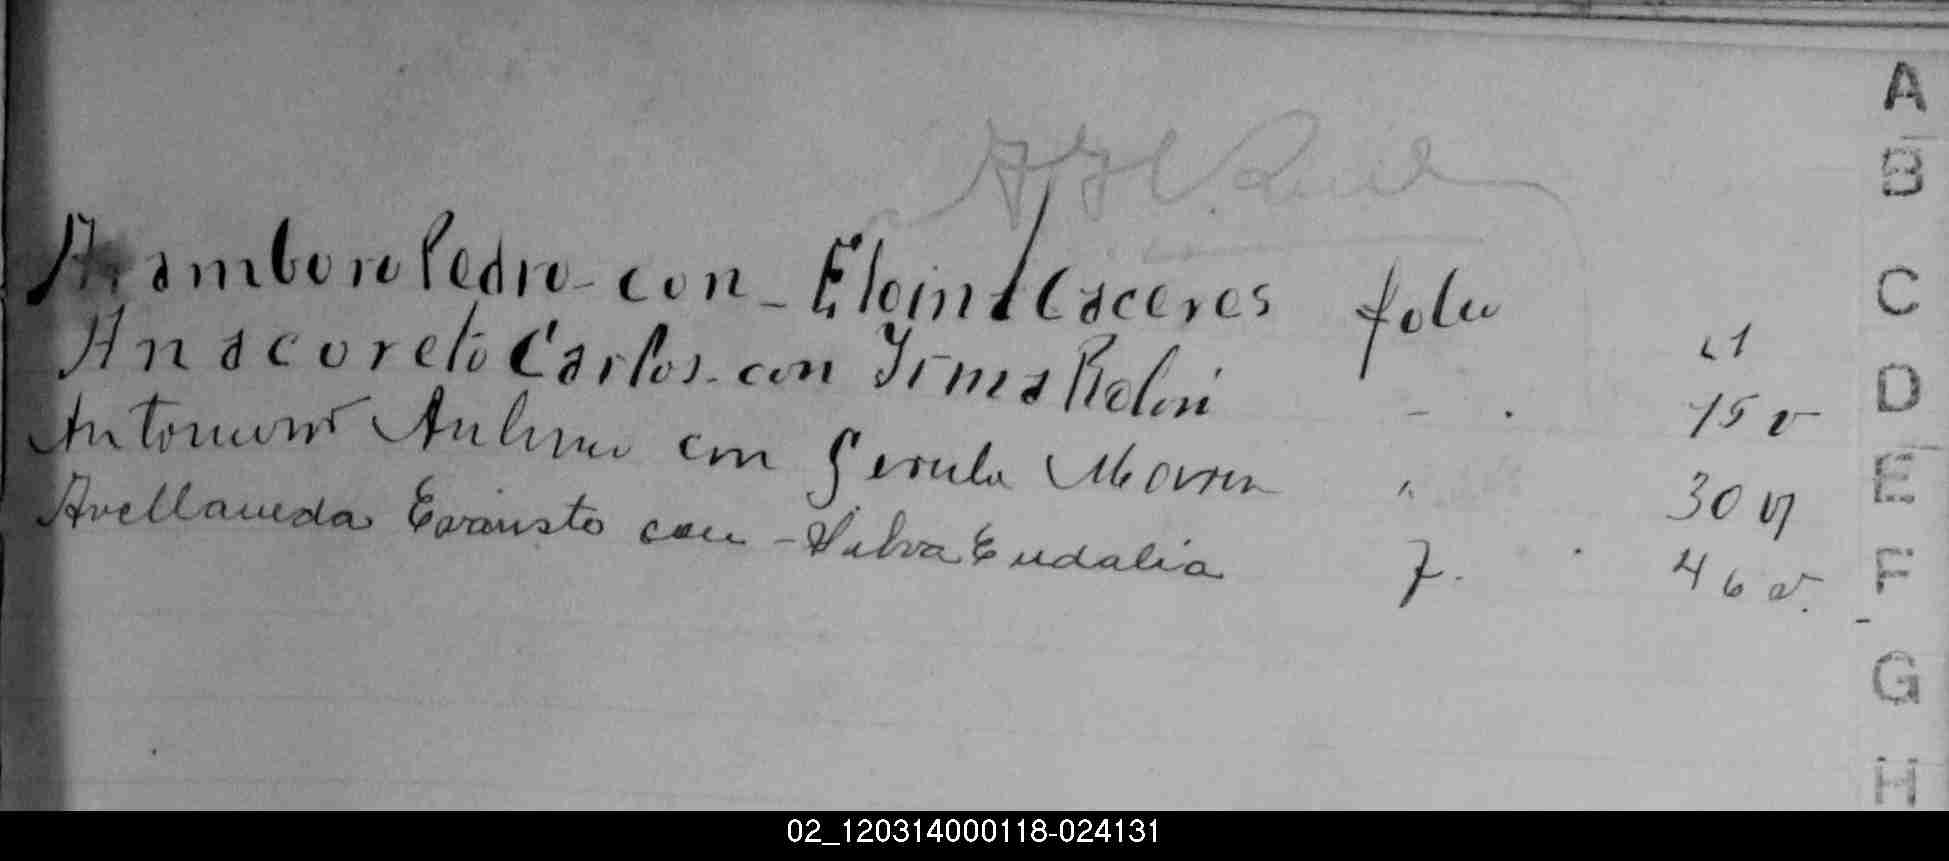 Aramburo Pedro - con - Eloina Caceres folio 21
Anacoreto Carlos - con Irma Rolon - . 15 v
con Moran " 30 v
Avellaneda Evaristo con - Silva Eudalia f. 46 v.
A
B
C
D
E
F
G
H
02_120314000118-024131